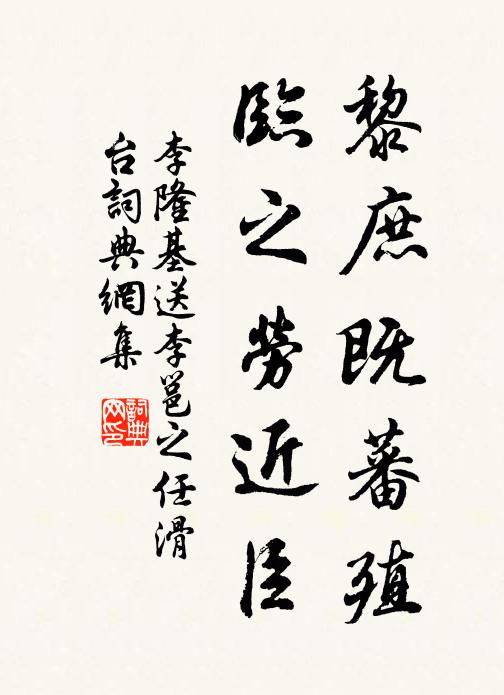 黎庶既蕃殖
臨之勞近臣
李隆基送李邕之任滑
台詞典網集
詞典網印